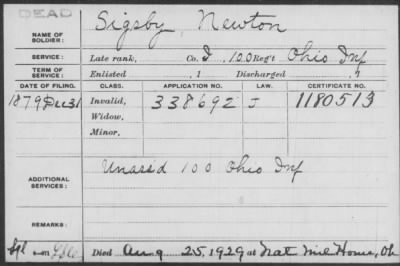 DEAD
NAME OF SOLDIER: Sigsby, Newton
SERVICE: Late rank, Co. I, 100 Reg't Ohio Inf
TERM OF SERVICE: Enlisted , 1 Discharged , 1
DATE OF FILING. CLASS. APPLICATION NO. LAW. CERTIFICATE NO.
1879 Dec 31 Invalid, 338692 J 1180513
Widow,
Minor,
ADDITIONAL SERVICES: Unass'd 100 Ohio Inf
REMARKS:
Died Aug 25, 1929 at Nat Mil Home, Oh